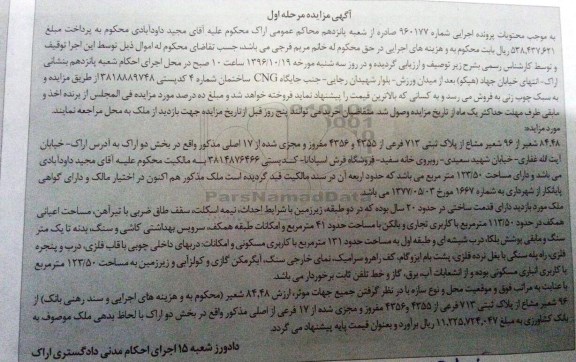 آگهی مزایده مرحله اول
به موجب محتویات پرونده اجرایی شماره ۹۶۰۱۷۷ صادره از شعبه پانزدهم محاکم عمومی اراک محکوم علیه آقای مجید داودآبادی محکوم به پرداخت مبلغ
۵۳۸,۴۳۷,۶۳۱ ریال بابت محکوم به و هزینه های اجرایی در حق محکوم له خانم مریم فرجی می باشد، حسب تقاضای محکوم له اموال ذیل توسط این اجرا توقیف
و توسط کارشناس رسمی بشرح زیر توصیف و ارزیابی گردیده و در روز سه شنبه مورخه ۱۳۹۶/۱۰/۱۹ ساعت ۱۰ صبح در محل اجرای احکام شعبه پانزدهم بنشانی
اراک- انتهای خیابان جهاد (هپکو) بعد از میدان ورزش- بلوار شهیدان رجایی- جنب جایگاه CNG ساختمان شماره ۴ کدپستی ۳۸۱۸۸۸۹۷۴۸ از طریق مزایده و
به سبک چوب زنی به فروش می رسد و به کسانی که بالاترین قیمت را پیشنهاد نماید فروخته خواهد شد و مبلغ ده درصد مورد مزایده فی المجلس از برنده اخذ و
مابقی ظرف مهلت حداکثر یک ماه از تاریخ مزایده وصول شد. متقاضیان خرید می توانند پنج روز قبل از تاریخ مزایده جهت بازدید از ملک به محل مراجعه نمایند.
مورد مزایده:
۸۴,۴۸ شعیر از ۹۶ شعیر مشاع از پلاک ثبتی ۷۱۳ فرعی از ۴۳۵۵ و ۴۳۵۶ مفروز و مجزی شده از ۱۷ اصلی مذکور واقع در بخش دو اراک به آدرس اراک- خیابان
آیت الله غفاری- خیابان شهید سعیدی- روبروی خانه سفید- فروشگاه فرش اسپادانا- کدپستی ۳۸۱۴۸۷۶۴۶۶ به مالکیت محکوم علیه آقای مجید داودآبادی
می باشد و دارای مساحت ۱۲۳/۵۰ متر مربع می باشد که حدود اربعه آن در سند مالکیت قید گردیده است ملک مذکور هم اکنون در اختیار مالک و دارای گواهی
پایانکار از شهرداری به شماره ۱۶۶۷ مورخ ۱۳۷۷/۰۵/۰۳ می باشد
ملک مورد بازدید دارای قدمت ساختی در حدود ۲۰ سال بوده که در دو طبقه، زیرزمین با شرایط احداث، نیمه اسکلت، سقف طاق ضربی با تیرآهن، مساحت اعیانی
همکف در حدود ۱۱۳/۵۰ مترمربع با کاربری تجاری و بالکن با مساحت حدود ۴۱ مترمربع و امکانات طبقه همکف، سرویس بهداشتی کاشی و سنگ، بدنه تا یک متر
سنگ و مابقی پوشش بلکا، درب شیشه ای و طبقه اول به مساحت حدود ۱۳۱ مترمربع با کاربری مسکونی و امکانات: دربهای داخلی چوبی با قاب فلزی، درب و پنجره
فلزی، راه پله سنگی با بغل نرده فلزی، پشت بام ایزوگام، کف راهرو سرامیک، نمای خارجی سنگ، آبگرمکن گازی و کولرآبی و زیرزمین به مساحت ۱۲۳/۵۰ مترمربع
با کاربری انباری مسکونی بوده و از انشعابات آب، برق، گاز و خط تلفن ثابت برخوردار می باشد.
با عنایت به مراتب فوق و موقعیت محل و نوع سازه با در نظر گرفتن جمیع جهات موثر، ارزش ۸۴,۴۸ شعیر (محکوم به و هزینه های اجرایی و سند رهنی بانک) از
۹۶ شعیر مشاع از پلاک ثبتی ۷۱۳ فرعی از ۴۳۵۵ و ۴۳۵۶ مفروز و مجزی شده از ۱۷ فرعی از اصلی مذکور واقع در بخش دو اراک با لحاظ بدهی ملک موصوف به
بانک کشاورزی به مبلغ ۱۱,۲۲۵,۷۲۴,۰۴۷ ریال برآورد و بعنوان قیمت پایه پیشنهاد می گردد.
دادورز شعبه ۱۵ اجرای احکام مدنی دادگستری اراک
ParsNamadData